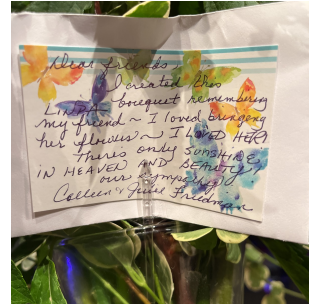 Dear friends,
I created this
LINDA bouquet remembering
my friend ~ I loved bringing
her flowers ~ I LOVED HER!
There's only SUNSHINE
IN HEAVEN AND BEAUTY!
our sympathy
Colleen & Friedman